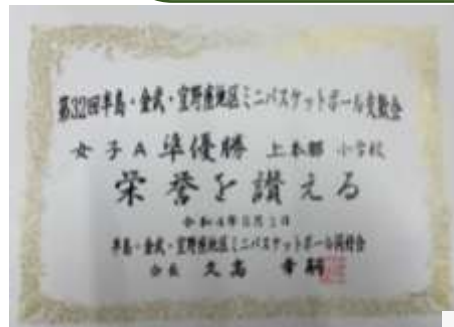 第32回半島・金武・宜野座地区ミニバスケットボール交歓会
女子A 準優勝 上本部 小学校
栄誉を讃える
令和4年5月1日
半島・金武・宜野座地区ミニバスケットボール同好会
会長 久高 幸嗣